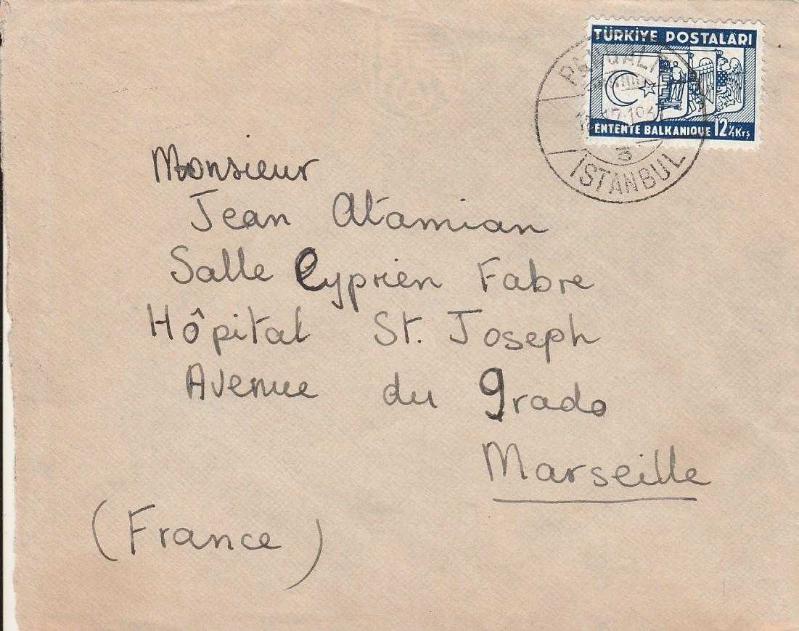 TÜRKİYE POSTALARI
ENTENTE BALKANIQUE 12½ Krş
3
İSTANBUL
Monsieur
Jean Atamian
Salle Cyprien Fabre
Hôpital St. Joseph
Avenue du Prado
Marseille
(France)